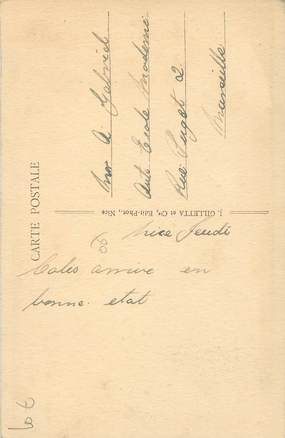 CARTE POSTALE
J. GILLETTA et Cie, Edit.-Phot., Nice
Mr A Gabriel
Auto Ecole Moderne
Rue Puget 2
Marseille
Nice Jeudi
Colis arrive en
bonne etat